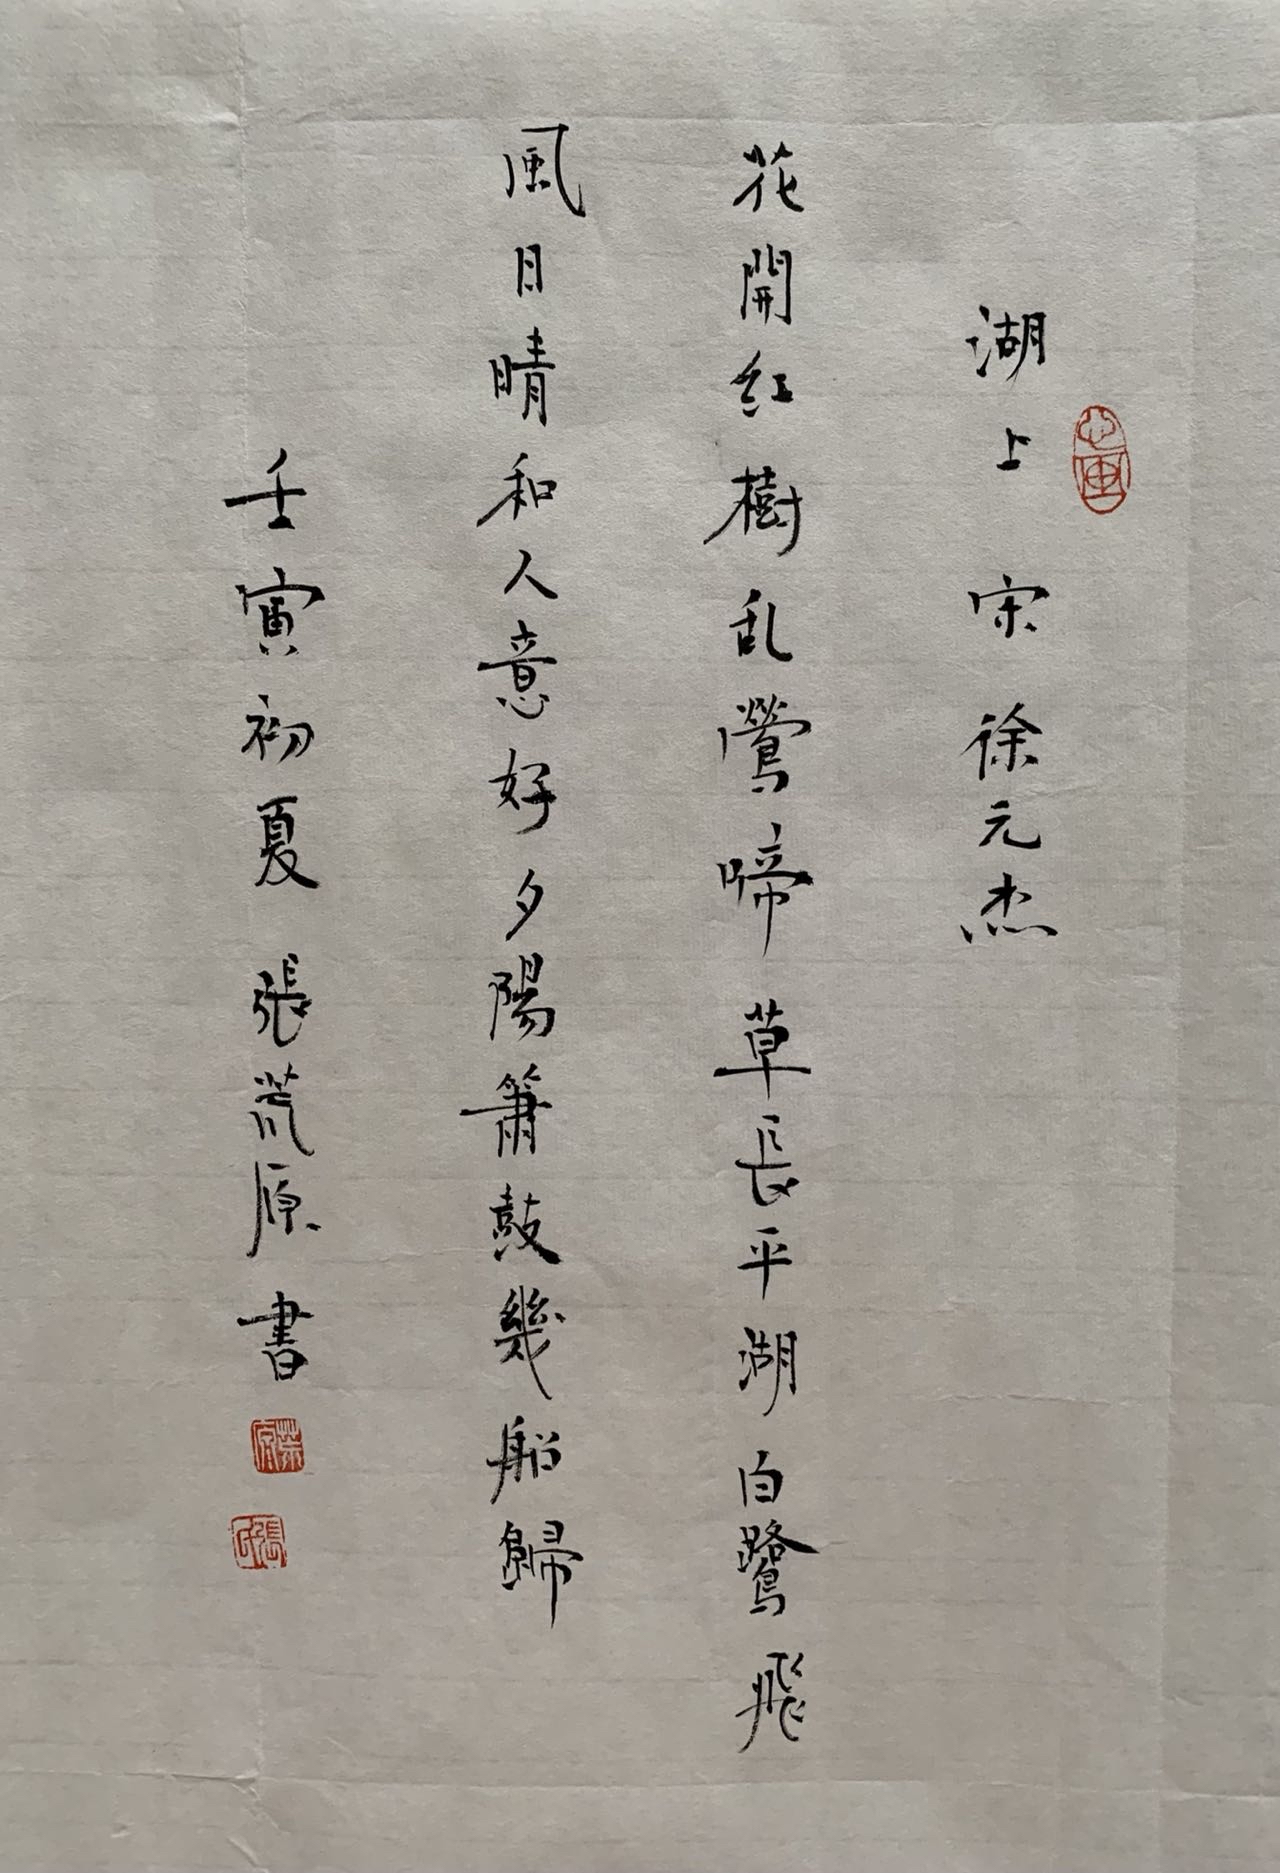 湖上 宋 徐元杰
花開紅樹乱鶯啼 草長平湖白鷺飛
風日晴和人意好夕陽簫鼓幾船歸
壬寅初夏 張荒原書
張氏